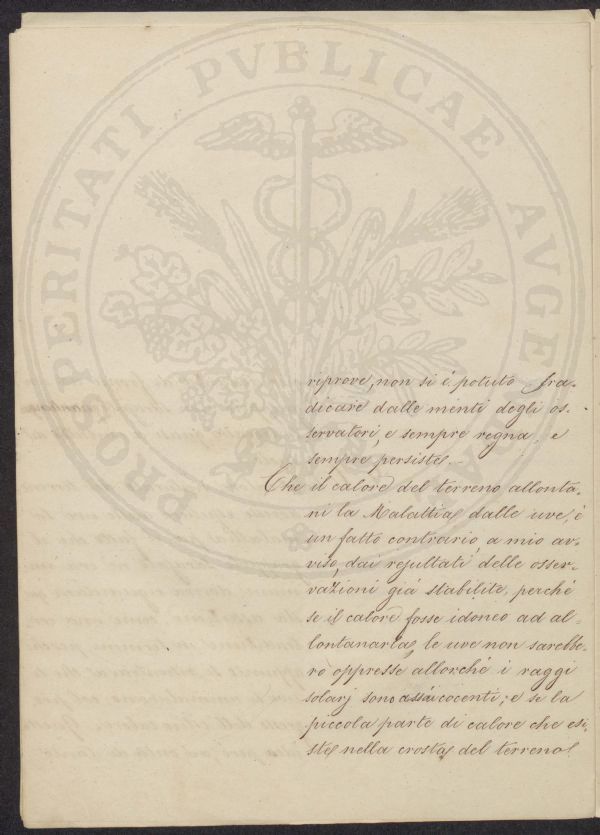 PROSPERITATI PVBLICAE AVGENDAE
riprove, non si è potuto sra-
dicare dalle menti degli os-
servatori, e sempre regna, e
sempre persiste.
Che il calore del terreno allonta-
ni la Malattia dalle uve, è
un fatto contrario, a mio av-
viso, dai resultati delle osser-
vazioni già stabilite, perchè
se il calore fosse idonio ad al-
lontanarla, le uve non sarebbe-
ro oppresse allorchè i raggi
solarj sono assai cocenti; e se la
piccola parte di calore che esi-
ste nella crosta del terreno